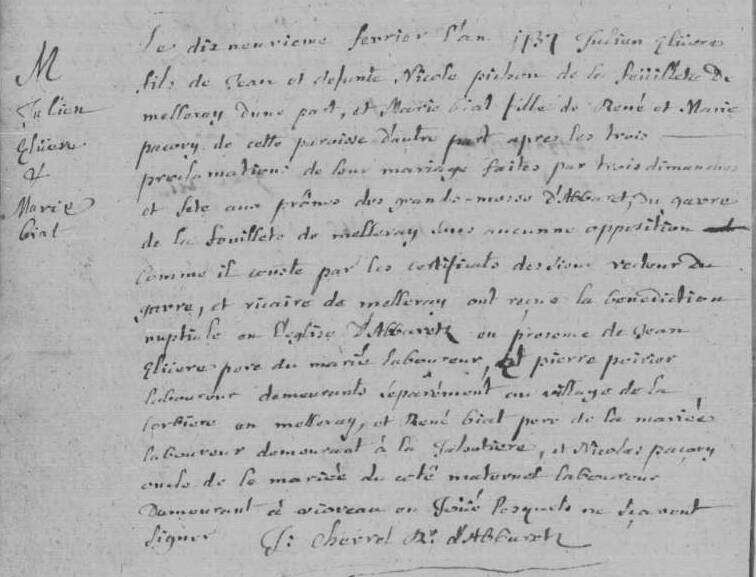 M
Julien
Gliiere
&
Marie
bial
Le dixneuvieme fevrier l'an 1737 Julien Gliiere
fils de Jean et defunte Nicole pichon de la feuillete De
melleray d'une part, et Marie bial fille de René et Marie
pacory de cette paroisse d'autre part apres les trois
proclamations de leur mariage faites par trois dimanches
et fete aux prônes des grandes messes d'Abbaret, du gavre
de la feuillete de melleray sans aucunne opposition
comme il conste par les certificats des sieurs recteur Du
gavre, et vicaire de melleray ont reçus la benediction
nuptiale en l'eglise d'Abbaretz en presence de Jean
Gliiere pere du marié laboureur, et pierre poirier
laboureur demeurants séparément au village de la
corbiere en melleray, et René bial pere de la mariée
laboureur demeurant à la Jaloutiere, et Nicolas pacory
oncle de la mariée du coté maternel laboureur
Demeurant à vioreau en Joüé lesquels ne sçavent
signer J: Chevrel R.r d'Abbaretz